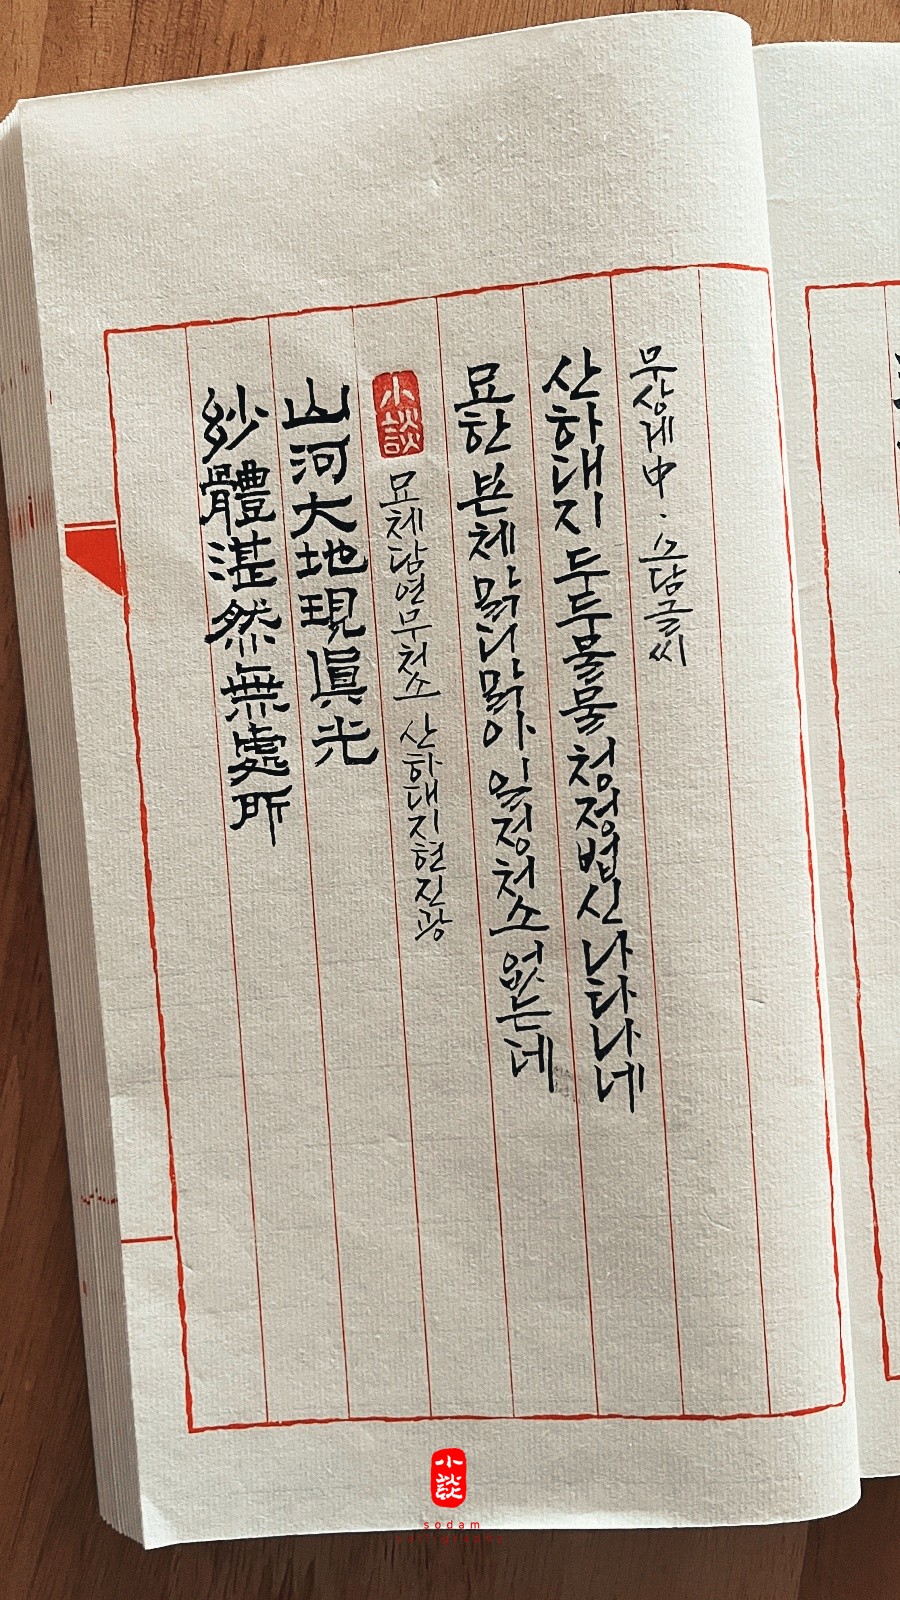 玅體湛然無處所
山河大地現眞光
小談
묘체담연무처소 산하대지현진광
묘한 본체 맑디맑아 일정처소 없는데
산하대지 두두물물 청정법신 나타나네
무상계中 · 소담글씨
小談
sodam